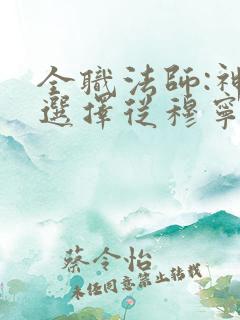 全職法師:神
選擇從穆寧
蔡令怡
未经同意禁止转载